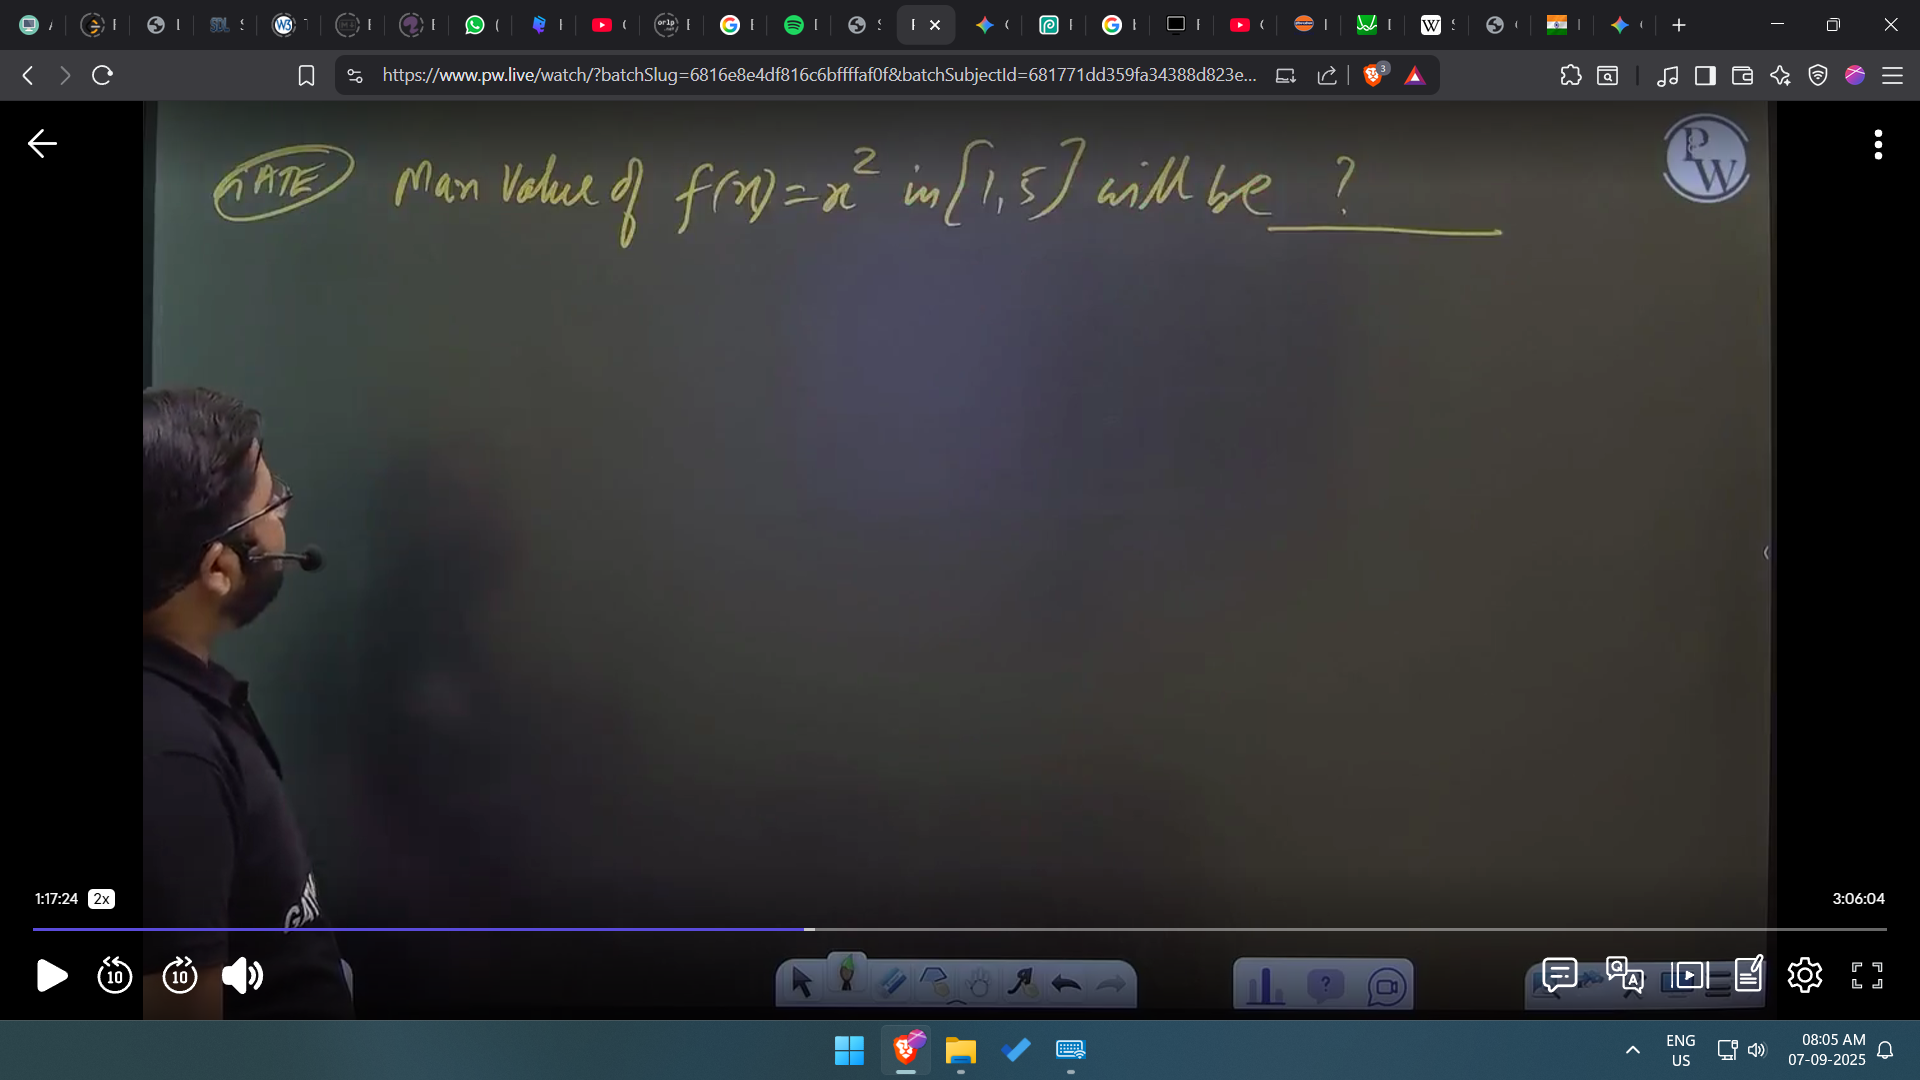 https://www.pw.live/watch/?batchSlug=6816e8e4df816c6bffffaf0f&batchSubjectId=681771dd359fa34388d823e...
3
GATE Max Value of f(x)=x² in [1,5] will be ?
PW
GAW
1:17:24 2x
3:06:04
10 10
ENG
US
08:05 AM
07-09-2025